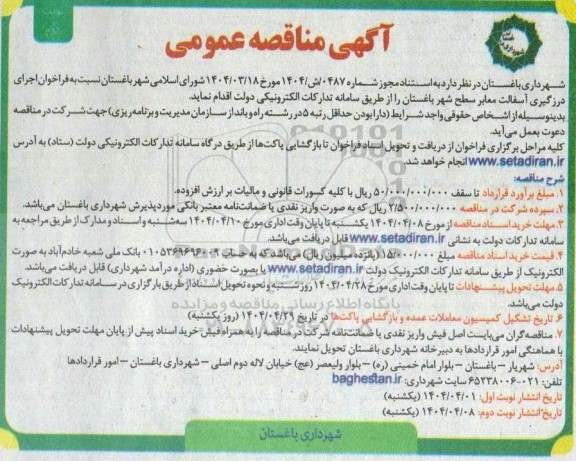 آگهی مناقصه عمومی
شهرداری باغستان در نظر دارد به استناد مجوز شماره ۰۴۸۷/ش/۱۴۰۴ مورخ ۱۴۰۴/۰۳/۱۸ شورای اسلامی شهر باغستان نسبت به فراخوان اجرای
درزگیری آسفالت معابر سطح شهر باغستان را از طریق سامانه تدارکات الکترونیکی دولت اقدام نماید.
بدینوسیله از اشخاص حقوقی واجد شرایط (دارا بودن حداقل رتبه ۵ در رشته راه و باند از سازمان مدیریت و برنامه ریزی) جهت شرکت در مناقصه
دعوت بعمل می‌آید.
کلیه مراحل برگزاری فراخوان از دریافت و تحویل اسناد فراخوان تا بازگشایی پاکت‌ها از طریق درگاه سامانه تدارکات الکترونیکی دولت (ستاد) به آدرس
www.setadiran.ir انجام خواهد شد.
شرح مناقصه:
۱. مبلغ برآورد قرارداد تا سقف ۵۰/۰۰۰/۰۰۰/۰۰۰ ریال با کلیه کسورات قانونی و مالیات بر ارزش افزوده.
۲. سپرده شرکت در مناقصه ۲/۵۰۰/۰۰۰/۰۰۰ ریال که به صورت واریز نقدی یا ضمانت‌نامه معتبر بانکی مورد پذیرش شهرداری باغستان می‌باشد.
۳. مهلت خرید اسناد مناقصه از مورخ ۱۴۰۴/۰۴/۰۸ یکشنبه تا پایان وقت اداری مورخ ۱۴۰۴/۰۴/۱۰ سه‌شنبه و اسناد و مدارک از طریق مراجعه به
سامانه تدارکات دولت به نشانی www.setadiran.ir قابل دریافت می‌باشد.
۴. قیمت خرید اسناد مناقصه مبلغ ۱۵/۰۰۰/۰۰۰ (پانزده میلیون ریال) می‌باشد که به حساب ۰۱۰۵۳۶۹۶۹۶۰۰۹ بانک ملی شعبه خادم‌آباد به صورت
الکترونیک از طریق سامانه تدارکات الکترونیک دولت www.setadiran.ir یا بصورت حضوری (اداره درآمد شهرداری) قابل دریافت می‌باشد.
۵. مهلت تحویل پیشنهادات تا پایان وقت اداری مورخ ۱۴۰۴/۰۴/۲۸ روز شنبه و نحوه تحویل اسناد از طریق بارگزاری در سامانه تدارکات الکترونیک
دولت می‌باشد.
۶. تاریخ تشکیل کمیسیون معاملات عمده و بازگشایی پاکت‌ها در تاریخ ۱۴۰۴/۰۴/۲۹ (روز یکشنبه)
۷. مناقصه‌گران می‌بایست اصل فیش واریز نقدی یا ضمانت‌نامه شرکت در مناقصه را به همراه فیش خرید اسناد پیش از پایان مهلت تحویل پیشنهادات
با هماهنگی امور قراردادها به دبیرخانه شهرداری باغستان تحویل نمایند.
آدرس: شهریار – باغستان – بلوار امام خمینی (ره) – بلوار ولیعصر (عج) خیابان لاله دوم اصلی – شهرداری باغستان – امور قراردادها
تلفن: ۰۲۱-۶۵۲۳۸۰۰۶ سایت شهرداری: baghestan.ir
تاریخ انتشار نوبت اول: ۱۴۰۴/۰۴/۰۱ (یکشنبه)
تاریخ انتشار نوبت دوم: ۱۴۰۴/۰۴/۰۸ (یکشنبه)
شهرداری باغستان